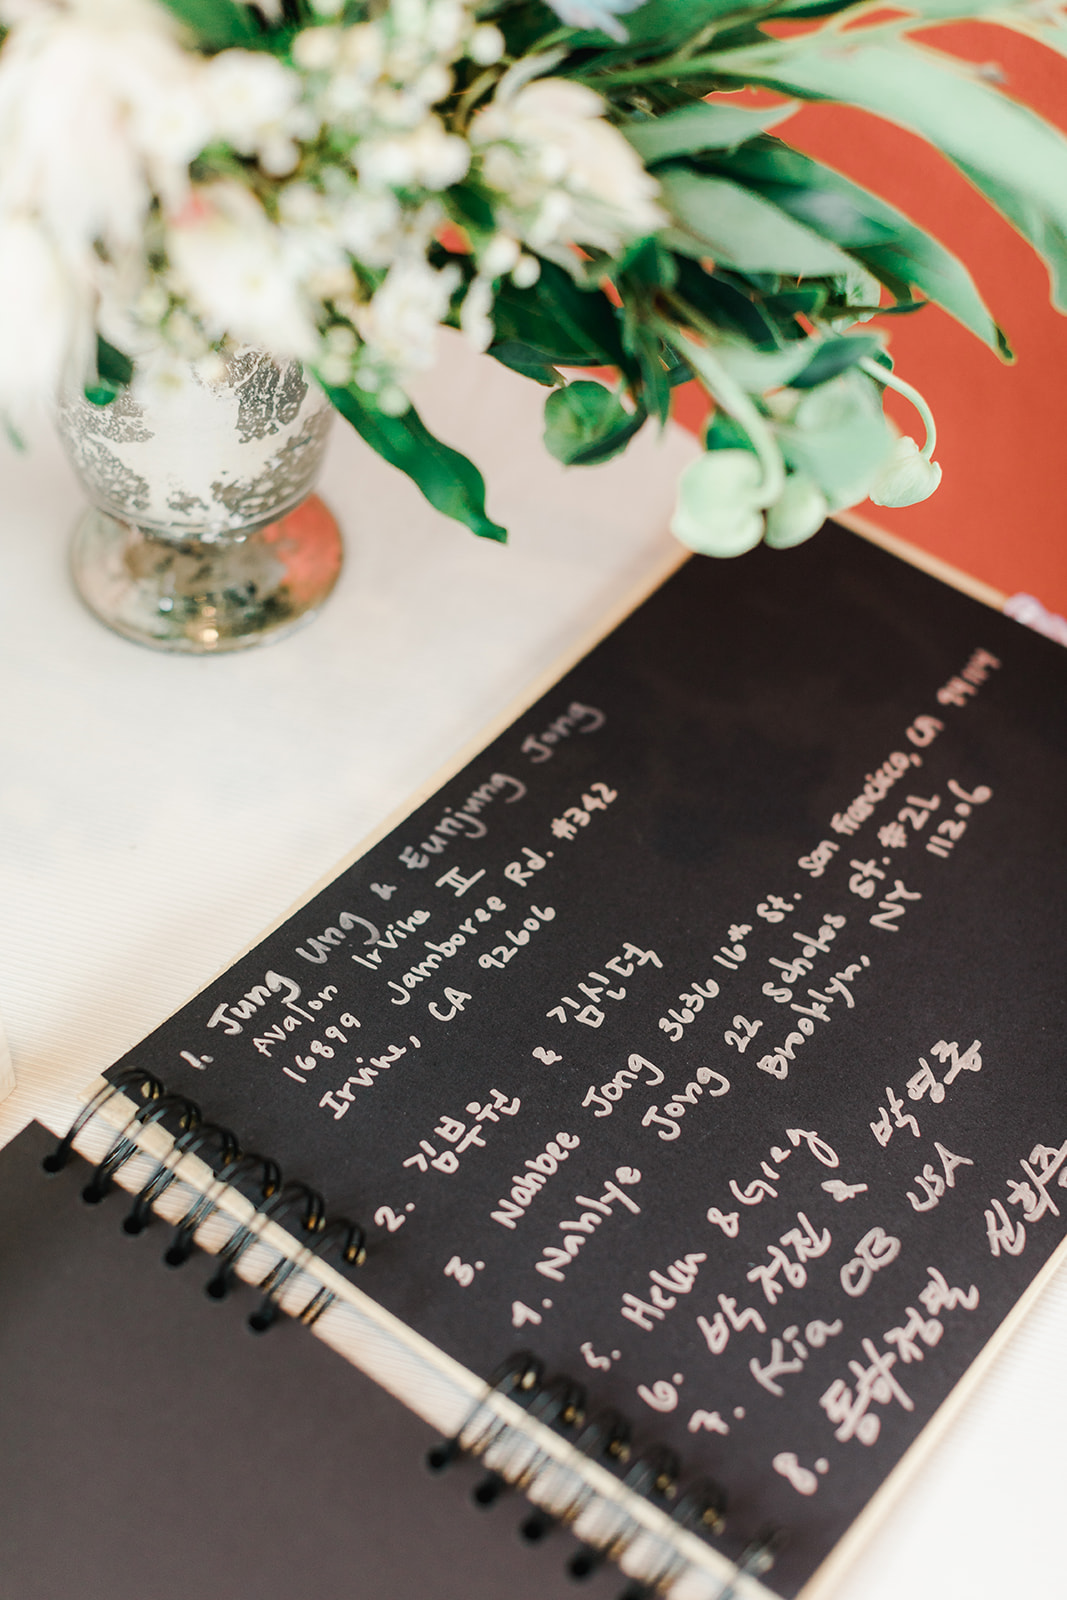 1. Jung Ung & Eunjung Jong
Avalon Irvine II
16899 Jamboree Rd. #342
Irvine, CA 92606
2. 김부원 & 김신덕
3. Nahbee Jong 3636 16th St. San Francisco, CA 94114
4. Nahlye Jong 22 Scholes St. #2L
Brooklyn, NY 11206
5. Helen & Greg
6. 박정진 & 박영중
7. Kia OB USA
8. 통합정필 신희중